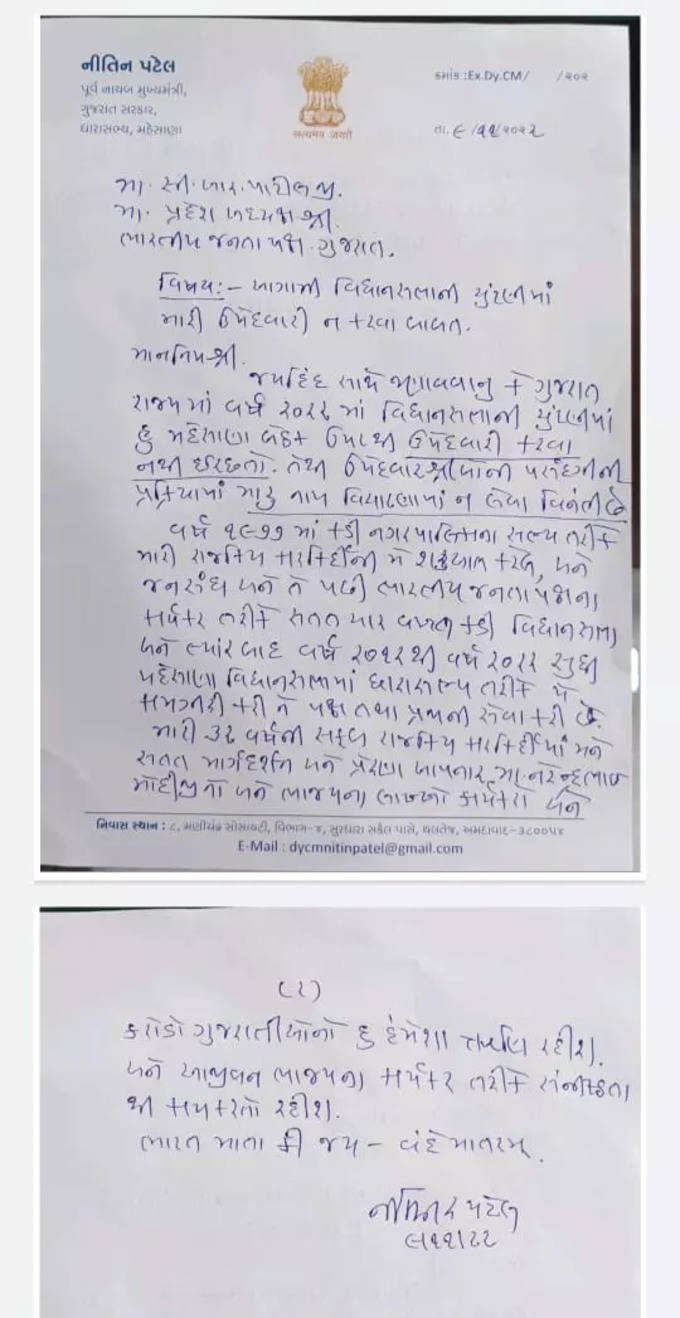 નીતિન પટેલ
પૂર્વ નાયબ મુખ્યમંત્રી,
ગુજરાત સરકાર,
ધારાસભ્ય, મહેસાણા
सत्यमेव जयते
ક્રમાંક :Ex.Dy.CM/ /૨૦૨
તા.૯/૧૧/૨૦૨૨
મા. સી. આર. પાટીલજી.
મા. પ્રદેશ અધ્યક્ષ શ્રી.
ભારતીય જનતા પક્ષ. ગુજરાત.
વિષય:- આગામી વિધાનસભાની ચુંટણીમાં
મારી ઉમેદવારી ન કરવા બાબત.
માનનિય શ્રી.
જયહિંદ સાથે જણાવવાનુ કે ગુજરાત
રાજ્યમાં વર્ષ ૨૦૨૨ માં વિધાનસભાની ચુંટણીમાં
હું મહેસાણા બેઠક ઉપરથી ઉમેદવારી કરવા
નથી ઈચ્છતો. તેથી ઉમેદવારશ્રીઓની પસંદગીની
પ્રક્રિયામાં મારૂ નામ વિચારણામાં ન લેવા વિનંતી છે
વર્ષ ૧૯૭૭ માં કડી નગરપાલિકાના સભ્ય તરીકે
મારી રાજકિય કારકિર્દીની મે શરૂઆત કરેલ, અને
જનસંઘ અને તે પછી ભારતીય જનતા પક્ષના
કાર્યકર તરીકે સતત ચાર વખત કડી વિધાનસભા
અને ત્યાર બાદ વર્ષ ૨૦૧૨થી વર્ષ ૨૦૨૨ સુધી
મહેસાણા વિધાનસભામાં ધારાસભ્ય તરીકે મે
કામગીરી કરી ને પક્ષ તથા પ્રજાની સેવા કરી છે.
મારી ૩૨ વર્ષની સફળ રાજકિય કારકિર્દીમાં મને
સતત માર્ગદર્શન અને પ્રેરણા આપનાર મા. નરેન્દ્રભાઈ
મોદીજીનો અને ભાજપના લાખ્ખો કાર્યકરો અને
નિવાસ સ્થાન : ૮, મણીચંદ્ર સોસાયટી, વિભાગ-૪, સુરધારા સર્કલ પાસે, થલતેજ, અમદાવાદ-૩૮૦૦૫૪
E-Mail : dycmnitinpatel@gmail.com
(૨)
કરોડો ગુજરાતીઓનો હુ હંમેશા રહીશ.
અને આજીવન ભાજપના કાર્યકર તરીકે
થી કામ કરતો રહીશ.
ભારત માતા કી જય - વંદે માતરમ્.
નીતિન પટેલ